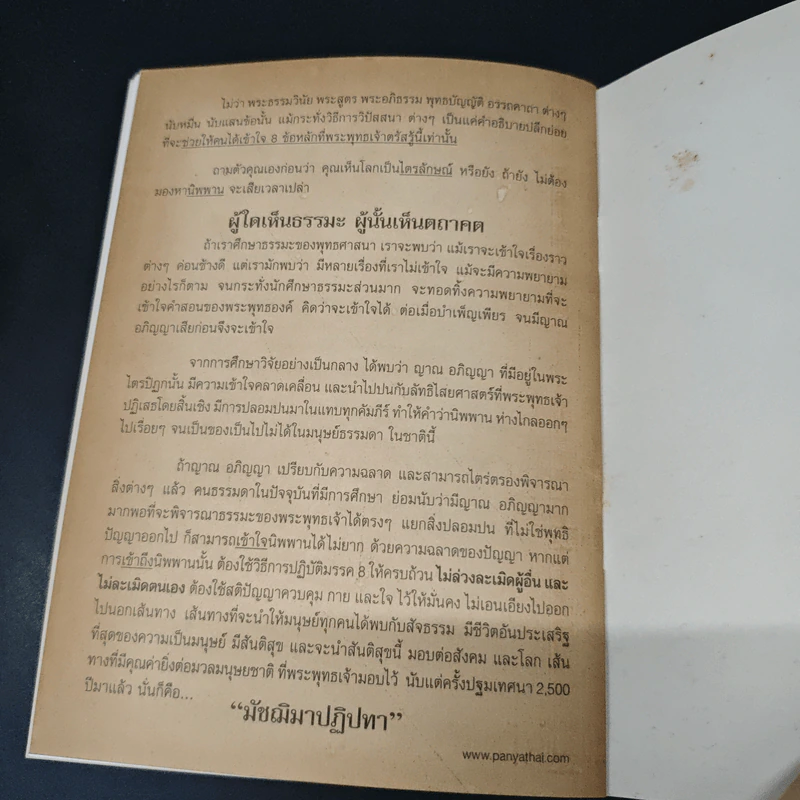 ไม่ว่า พระธรรมวินัย พระสูตร พระอภิธรรม พุทธบัญญัติ อรรถคาถา ต่างๆ
นับหมื่น นับแสนข้อนั้น แม้กระทั่งวิธีการวิปัสสนา ต่างๆ เป็นแค่คำอธิบายปลีกย่อย
ที่จะช่วยให้คนได้เข้าใจ 8 ข้อหลักที่พระพุทธเจ้าตรัสรู้นี้เท่านั้น
ถามตัวคุณเองก่อนว่า คุณเห็นโลกเป็นไตรลักษณ์ หรือยัง ถ้ายัง ไม่ต้อง
มองหานิพพาน จะเสียเวลาเปล่า
ผู้ใดเห็นธรรมะ ผู้นั้นเห็นตถาคต
ถ้าเราศึกษาธรรมะของพุทธศาสนา เราจะพบว่า แม้เราจะเข้าใจเรื่องราว
ต่างๆ ค่อนข้างดี แต่เรามักพบว่า มีหลายเรื่องที่เราไม่เข้าใจ แม้จะมีความพยายาม
อย่างไรก็ตาม จนกระทั่งนักศึกษาธรรมะส่วนมาก จะทอดทิ้งความพยายามที่จะ
เข้าใจคำสอนของพระพุทธองค์ คิดว่าจะเข้าใจได้ ต่อเมื่อบำเพ็ญเพียร จนมีญาณ
อภิญญาเสียก่อนจึงจะเข้าใจ
จากการศึกษาวิจัยอย่างเป็นกลาง ได้พบว่า ญาณ อภิญญา ที่มีอยู่ในพระ
ไตรปิฎกนั้น มีความเข้าใจคลาดเคลื่อน และนำไปปนกับลัทธิไสยศาสตร์ที่พระพุทธเจ้า
ปฏิเสธโดยสิ้นเชิง มีการปลอมปนมาในแทบทุกคัมภีร์ ทำให้คำว่านิพพาน ห่างไกลออกๆ
ไปเรื่อยๆ จนเป็นของเป็นไปไม่ได้ในมนุษย์ธรรมดา ในชาตินี้
ถ้าญาณ อภิญญา เปรียบกับความฉลาด และสามารถไตร่ตรองพิจารณา
สิ่งต่างๆ แล้ว คนธรรมดาในปัจจุบันที่มีการศึกษา ย่อมนับว่ามีญาณ อภิญญามาก
มากพอที่จะพิจารณาธรรมะของพระพุทธเจ้าได้ตรงๆ แยกสิ่งปลอมปน ที่ไม่ใช่พุทธิ
ปัญญาออกไป ก็สามารถเข้าใจนิพพานได้ไม่ยาก ด้วยความฉลาดของปัญญา หากแต่
การเข้าถึงนิพพานนั้น ต้องใช้วิธีการปฏิบัติมรรค 8 ให้ครบถ้วน ไม่ล่วงละเมิดผู้อื่น และ
ไม่ละเมิดตนเอง ต้องใช้สติปัญญาควบคุม กาย และใจ ไว้ให้มั่นคง ไม่เอนเอียงไปออก
ไปนอกเส้นทาง เส้นทางที่จะนำให้มนุษย์ทุกคนได้พบกับสัจธรรม มีชีวิตอันประเสริฐ
ที่สุดของความเป็นมนุษย์ มีสันติสุข และจะนำสันติสุขนี้ มอบต่อสังคม และโลก เส้น
ทางที่มีคุณค่ายิ่งต่อมวลมนุษยชาติ ที่พระพุทธเจ้ามอบไว้ นับแต่ครั้งปฐมเทศนา 2,500
ปีมาแล้ว นั่นก็คือ...
“มัชฌิมาปฏิปทา”
www.panyathai.com